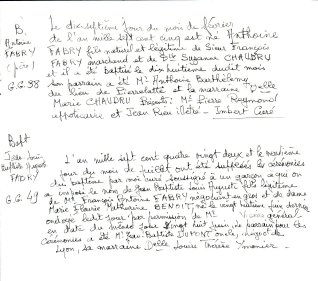 B. Antoine FABRY (père) G.G. 38
Le dix septième jour du mois de février
de l'an mille sept cent cinq est né Anthoine
FABRY fils naturel et légitime de Sieur François
FABRY marchand et de Dlle Suzanne CHAUDRU
et il a été baptisé le dix huitième dudit mois
Son parrain a été Mr Anthoine Barthélemy
du lieu de Pierrelatte et la marraine Delle
Marie CHAUDRU Présents: Mr Pierre Raymond
appoticaire et Jean - Imbert Curé
Bapt Jean Louis Baptiste Auguste FABRY G.G. 49
L'an mille sept cent quatre vingt deux et le
jour du mois de juillet ont été supplées les cérémonies
du baptême par moi curé soussigné à un garçon à qui on
a imposé le nom de Jean Baptiste Louis Auguste fils légitime
de Mr François Antoine FABRY négociant en gros et de dame
Marie BENOIT, né le vingt huitième juin dernier
ondoyé ledit jour par permission de Mr Vicaire général
en date du même jour vingt huit juin, le parrain pour les
cérémonies a été Mr Jean Baptiste DUPONT oncle, négot. de
Lyon, sa marraine Delle Louise Thérèse